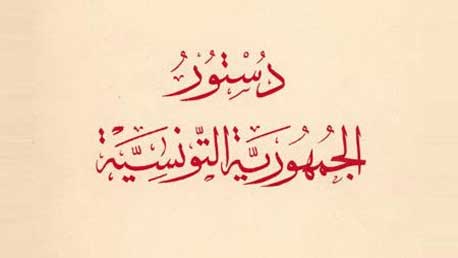 دُسْتُورُ
الجُمهُورِيَّةِ التّونسِيَّة